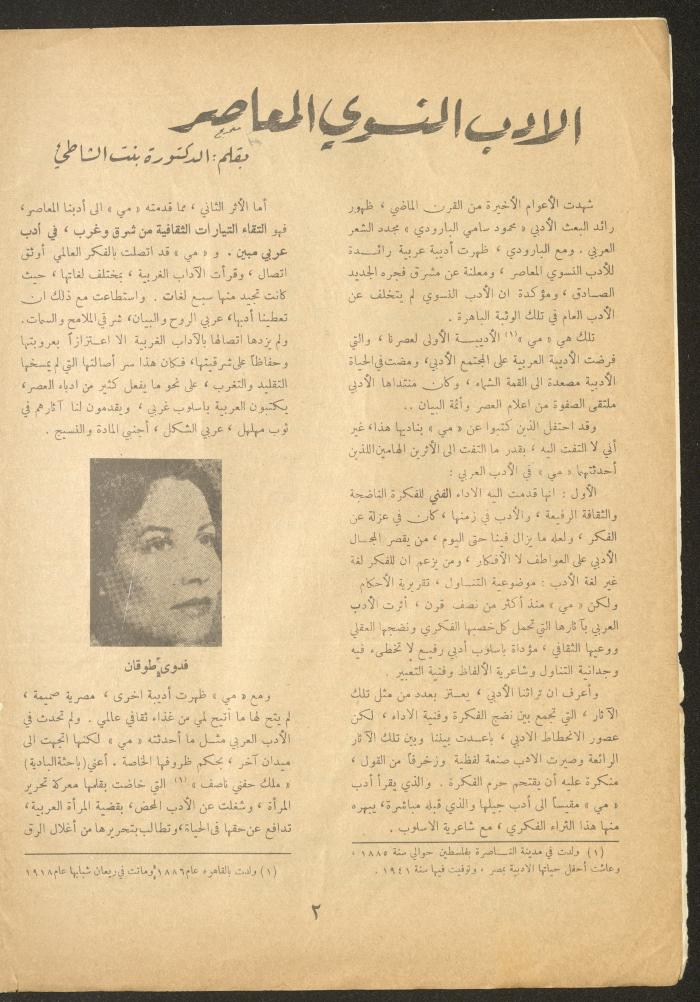 الادب النسوي المعاصر
بقلم : الدكتورة بنت الشاطئ
شهدت الأعوام الأخيرة من القرن الماضي ، ظهور
رائد البعث الأدبي « محمود سامي البارودي » مجدد الشعر
العربي . ومع البارودي ، ظهرت أديبة عربية رائــدة
للأدب النسوي المعاصر ، ومعلنة عن مشرق فجره الجديد
الصادق ، ومؤكدة ان الأدب النسوي لم يتخلف عن
الأدب العام في تلك الوثبة الباهرة .
تلك هي « مي »(١) الأديبـة الأولى لعصرنا ، والتي
فرضت الأديبة العربية على المجتمع الأدبي، ومضت في الحياة
الأدبية مصعدة الى القمة الشماء ، وكان منتداها الأدبي
ملتقى الصفوة من اعلام العصر وأئمة البيان ..
وقد احتفل الذين كتبوا عن « مي » بناديها هذا، غير
أني لا التفت اليه ، بقدر ما التفت الى الأثرين الهامين اللذين
أحدثتهما « مي » في الأدب العربي :
الأول : انها قدمت اليه الاداء الفني للفكرة الناضجة
والثقافة الرفيعة ، والأدب في زمنها ، كان في عزلة عن
الفكر ، ولعله ما يزال فينا حتى اليوم ، من يقصر المجـال
الأدبي على العواطف لا الأفكار ، ومن يزعم ان للفكر لغة
غير لغة الأدب : موضوعية التناول ، تقريرية الأحكام
ولكن « مي » منذ أكثر من نصف قرن ، أثرت الأدب
العربي بآثارها التي تحمل كل خصبها الفكري ونضجها العقلي
ووعيها الثقافي ، مؤداة باسلوب أدبي رفيع لا تخطىء فيه
وجدانية التناول وشاعرية الألفاظ وفنية التعبير .
وأعرف ان تراثنا الأدبي ، يعـتز بعدد من مثل تلك
الآثار ، التي تجمع بين نضج الفكرة وفنية الاداء ، لكن
عصور الانحطاط الادبي ، باعدت بيننا وبين تلك الآثار
الرائعة وصيرت الادب صنعة لفظية وزخرفاً من القول ،
منكرة عليه أن يقتحم حرم الفكرة . والذي يقرأ أدب
« مي » مقيساً الى أدب جيلها والذي قبله مباشرة، يبهره
منها هذا الثراء الفكري ، مع شاعرية الاسلوب .
(١) ولدت في مدينة النــاصرة بفلسطين حوالي سنة ١٨٨٥ ،
وعاشت أحفل حياتها الادبية بمصر ، وتوفيت فيها سنة ١٩٤١ .
أما الأثر الثاني ، مما قدمته « مي » الى أدبنا المعاصر،
فهو التقاء التيارات الثقافية من شرق وغرب ، في أدب
عربي مبين . و « مي » قد اتصلت بالفكر العالمي أوثق
اتصال ، وقرأت الآداب الغربية ، بمختلف لغاتها ، حيث
كانت تجيد منها سبع لغات . واستطاعت مع ذلك ان
تعطينا أدبها، عربي الروح والبيان، شرقي الملامح والسمات.
ولم يزدها اتصالها بالآداب الغربية الا اعـتزازاً بعروبتها
وحفاظاً على شرقيتها، فكان هذا سر أصالتها التي لم يمسخها
التقليد والتغرب ، على نحو ما يفعل كثير من ادباء العصر،
يكتبون العربية باسلوب غربي ، ويقدمون لنا آثارهم في
ثوب مهلهل ، عربي الشكل ، أجنبي المادة والنسيج .
فدوى طوقان
ومع « مي » ظهرت أديبة اخرى ، مصرية صميمة ،
لم يتح لها ما أتيح لمي من غذاء ثقافي عالمي . ولم تحدث في
الأدب العربي مثــل ما أحدثته « مي » لكنها اتجهت الى
ميدان آخر ، بحكم ظروفها الخاصة . أعني (باحثة البادية)
« ملك حفني ناصف » (١) التي خاضت بقلمها معركة تحرير
المرأة ، وشغلت عن الأدب المحض، بقضية المرأة العربية،
تدافع عن حقها في الحياة، وتطالب بتحريرها من أغلال الرق
(١) ولدت بالقاهره عام ١٨٨٦ وماتت في ريعان شبابها عام ١٩١٨
٢